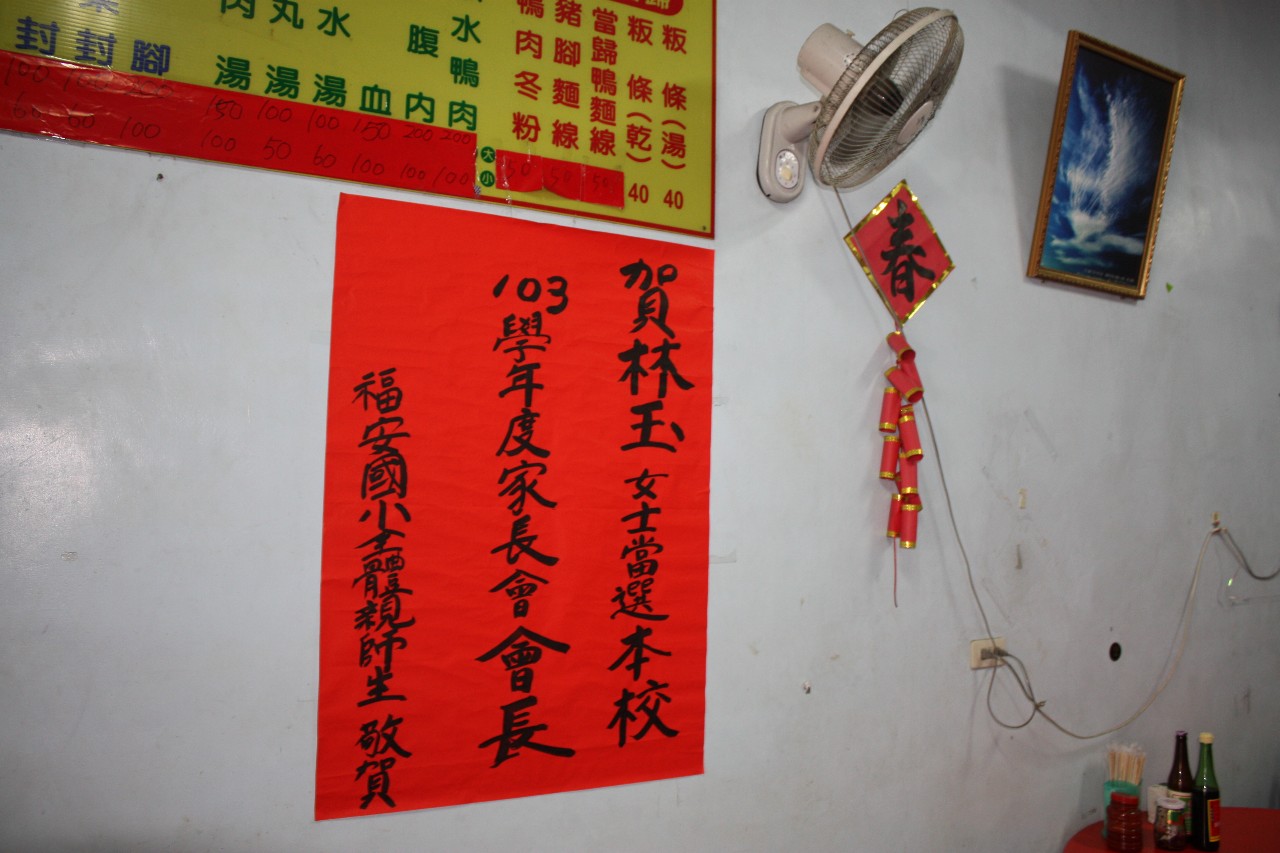 粄條(湯) 40
粄條(乾) 40
當歸鴨麵線 50
豬腳麵線 50
鴨肉冬粉 50
大
小
水鴨肉 200 100
腹內 200 100
血 150 100
水 湯 100 60
丸湯 100 50
肉湯 150 100
腳 100
封 100 60
封 100 60
春
賀林玉女士當選本校
103學年度家長會會長
福安國小全體親師生 敬賀